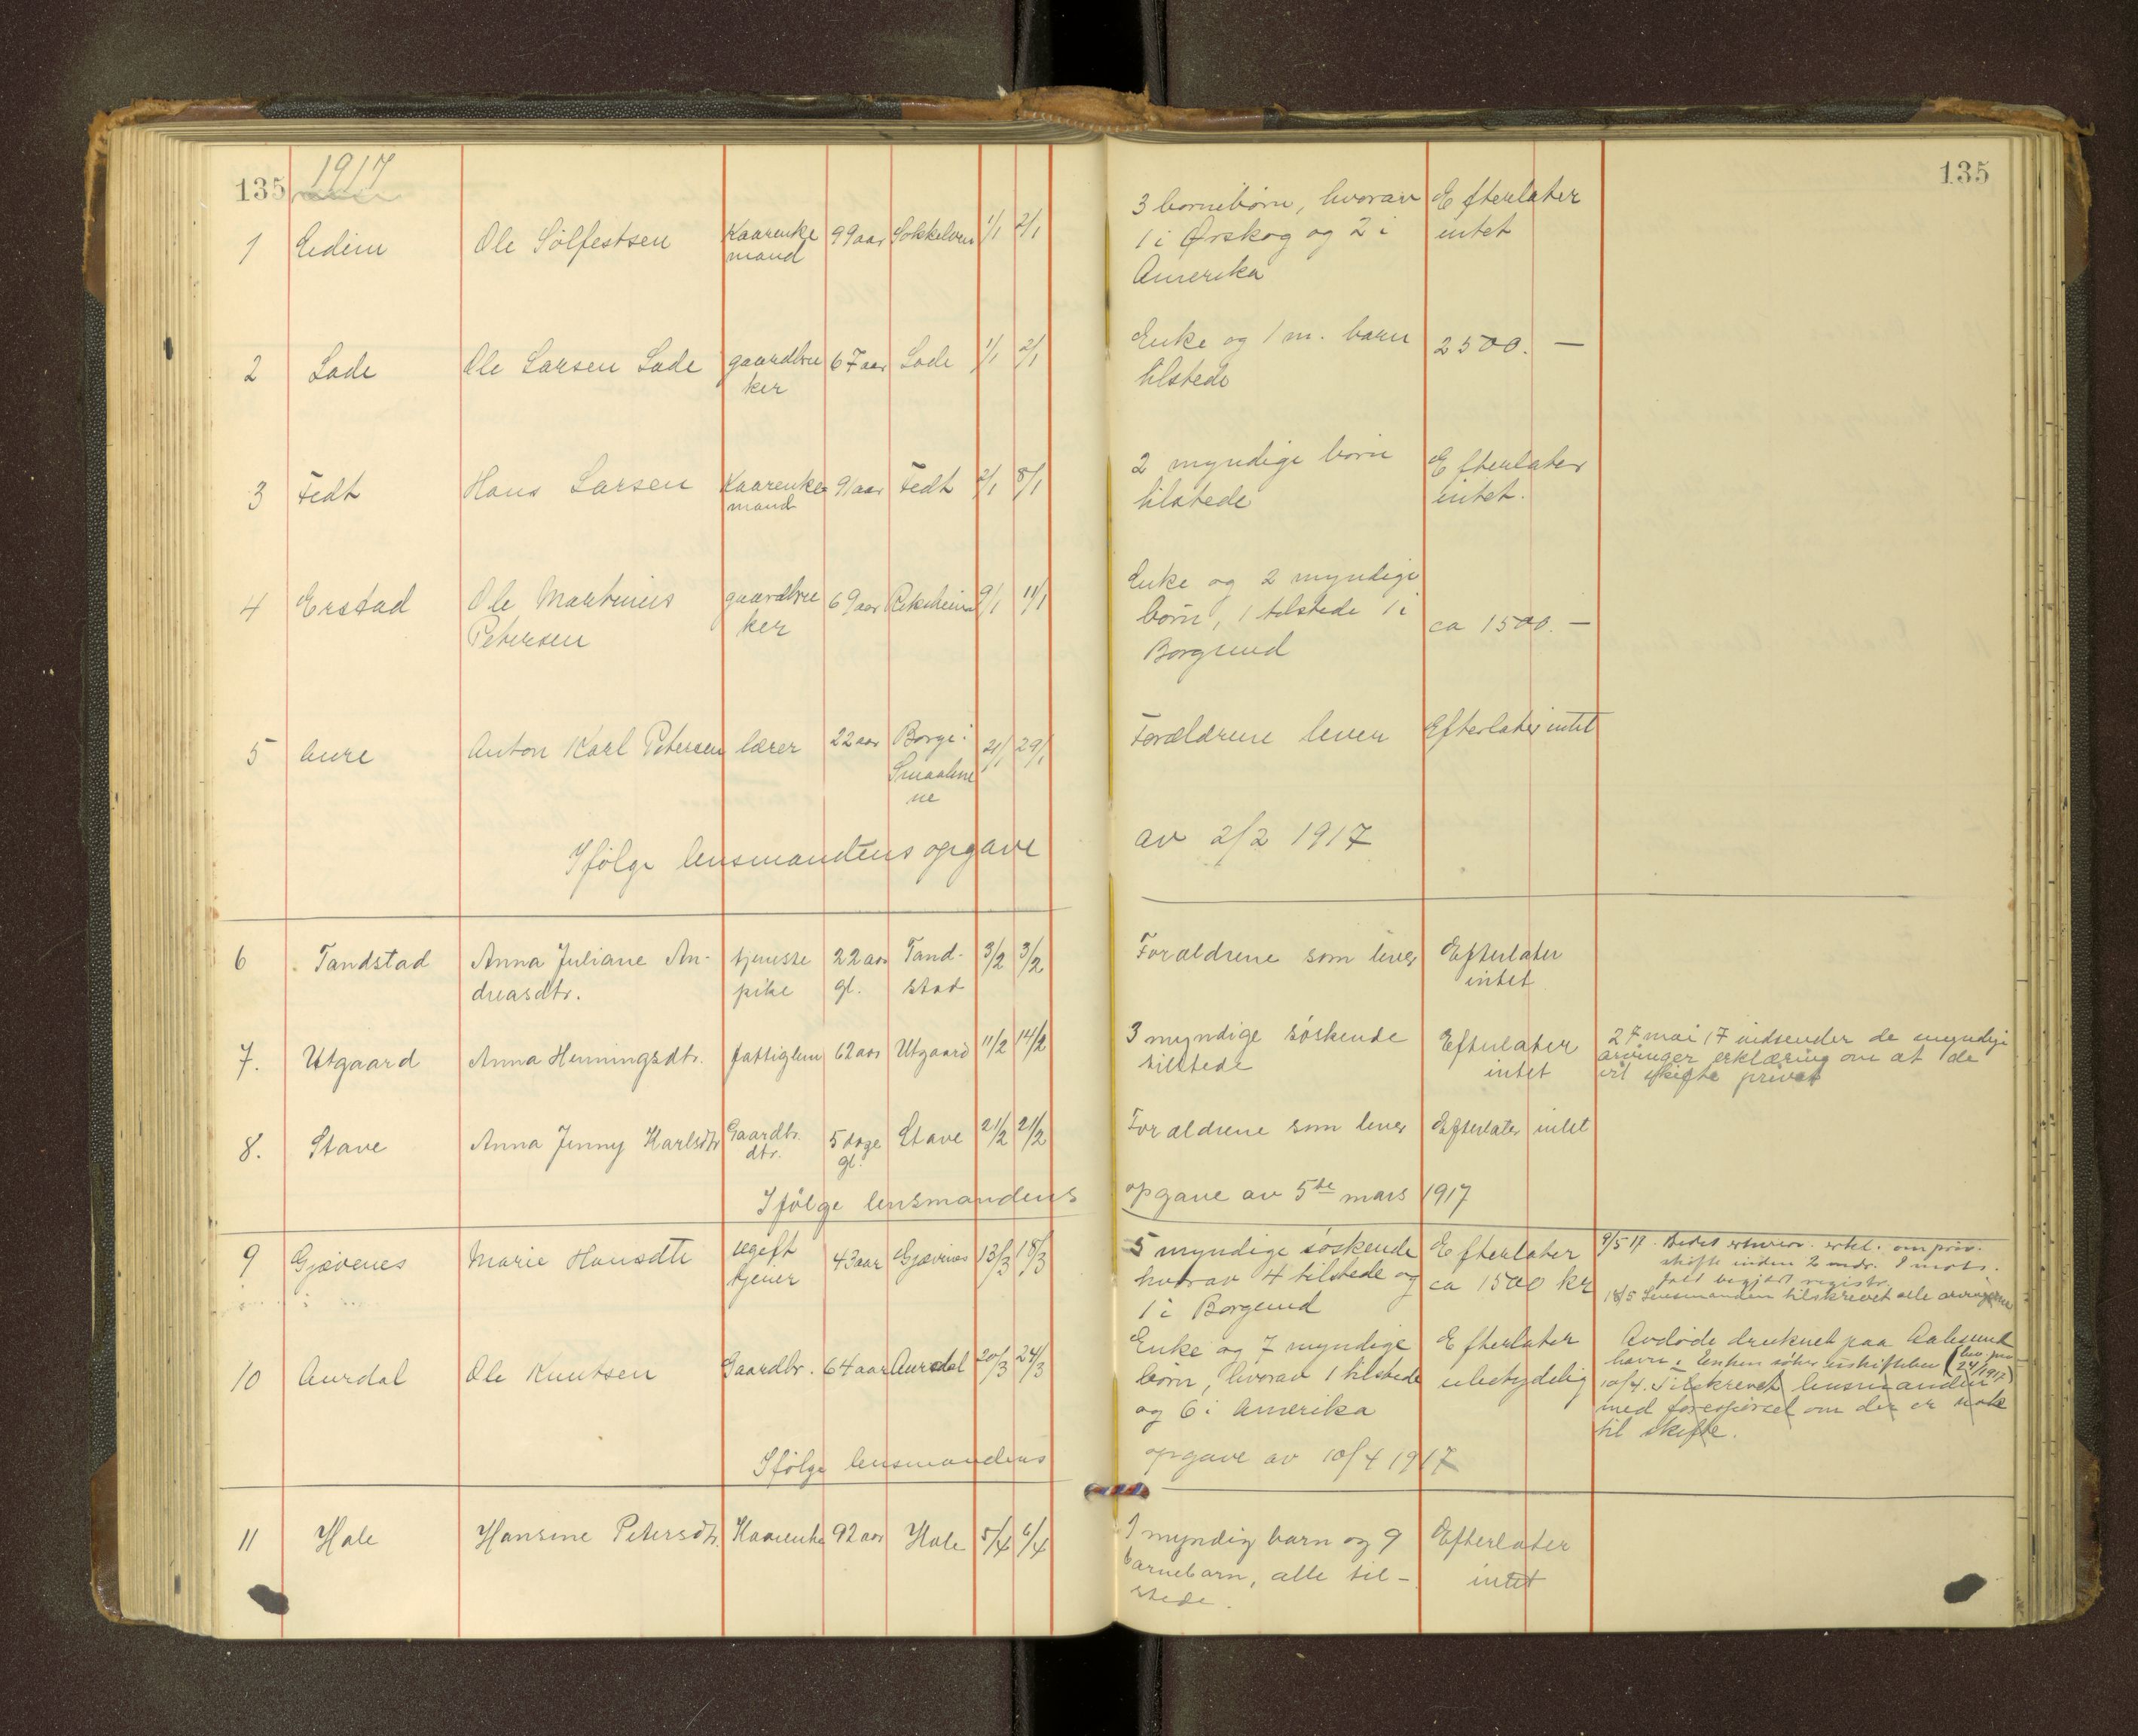 135 1917
135
1 Eidim Ole Sølfestsen Kaarenke 99 aar Sokkelven 1/1 2/1
mand
3 børnebørn, hvorav Efterlater
1 i Ørskog og 2 i intet
Amerika
2 Lade Ole Larsen Lade gaardbru 67 aar Lade 1/1 2/1
ker
Enke og 1 m. barn 2500. —
tilstede
3 Fedt Hans Larsen Kaarenke 91 aar Fedt 2/1 8/1
mand
2 myndige børn Efterlater
tilstede intet.
4 Erstad Ole Martinus gaardbru 69 aar Rekeheim 9/1 11/1
Petersen ker
Enke og 2 myndige
børn, 1 tilstede 1 i ca 1500. —
Borgund
5 Aure Anton Karl Petersen lærer 22 aar Borge i 21/1 29/1
Smaalene
ne
Forældrene lever Efterlater intet
Ifølge lensmandens opgave av 2/2 1917
6 Tandstad Anna Juliane An- tjeneste 22 aar Tand- 3/2 3/2
dreasdtr. pike gl. stad
Forældrene som lever Efterlater
intet
7. Utgaard Anna Henningsdtr. fattiglem 62 aar Utgaard 11/2 14/2
3 myndige søskende Efterlater 27 mai 17 indsender de myndige
tilstede intet arvinger erklæring om at de
vil skifte privat
8. Stave Anna Jenny Karlsdtr Gaardbr. 5 dage Stave 21/2 21/2
dtr. gl.
Forældrene som lever Efterlater intet
Ifølge lensmandens opgave av 5te mars 1917
9 Gjævenes Marie Hansdtr ugift 43 aar Gjævnes 13/3 18/3
tjener
5 myndige søskende Efterlater 9/5 17. Bedet erhverv. erkl. om priv.
hvorav 4 tilstede og ca 1500 kr skifte inden 2 mdr. I mots.
1 i Borgund fald begjært registr.
18/5 Lensmanden tilskrevet alle arvingerne
10 Aurdal Ole Knutsen Gaardbr. 64 aar Aurdal 20/3 24/3
Enke og 7 myndige Efterlater Avdøde druknet paa Aalesund
børn, hvorav 1 tilstede ubetydelig havn. Enken søker uskiftebev (bev. 24/ 1917)
og 6 i Amerika 10/4. Tilskrevet lensmanden
med forespørsel om der er nok
til skifte.
Ifølge lensmandens opgave av 10/4 1917
11 Hole Hansine Petersdtr. Kaarenke 92 aar Hole 5/4 6/4
1 myndig barn og 9 Efterlater
barnebarn, alle til- intet
stede.